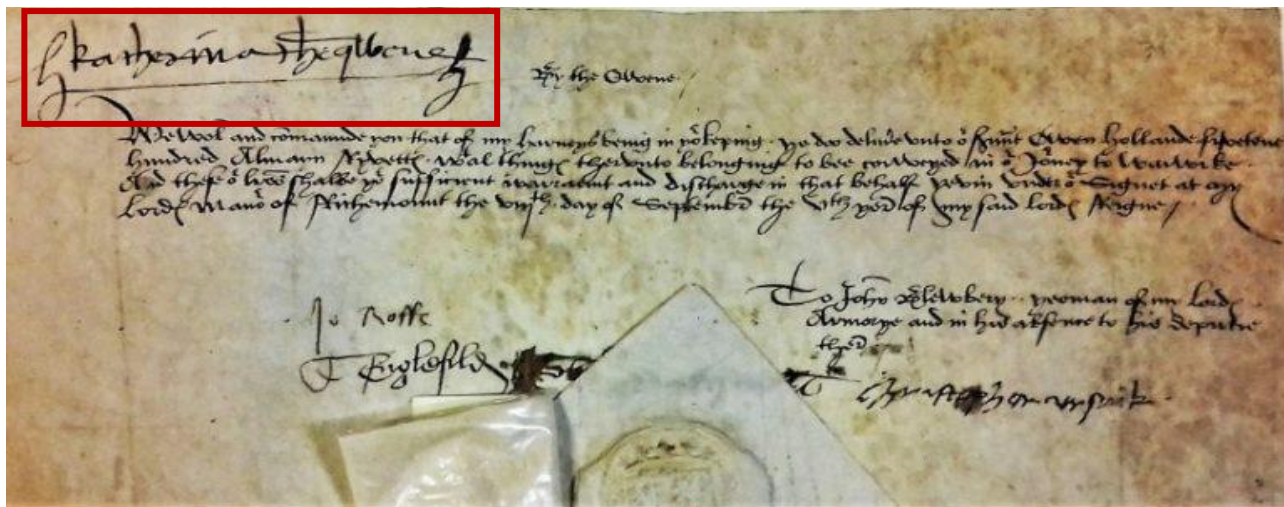 katherina the qwene
By the Qwene
We wol and comaunde you that of my harneys being in yor keping ye do delivre unto or svunt Owen Hollande fiveteene
hundred Almann Ryvettes wal thinges therunto belonging to bee conveyed in or Joney to Warwike
And these or lres shalbe yor sufficient warraunt and discharge in that behalf yevin undre or Signet at my
Lordes Manor of Richemount the viijth day of Septembre the vth yere of my said lordes Reigne
Jo Roffe
To John Blewbery yeoman of my Lordes
Armorye and in his absence to his deputie
there
T Englefild